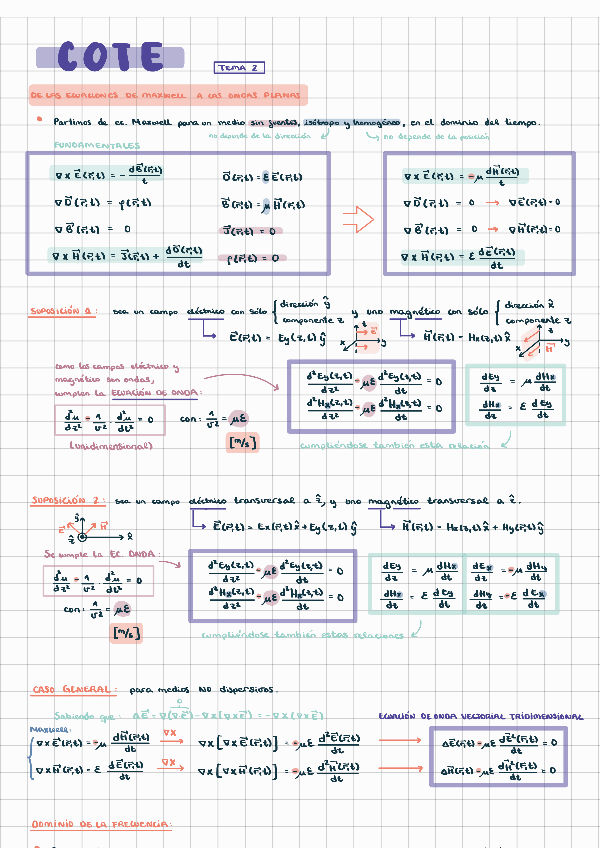 COTE
TEMA 2
DE LAS ECUACIONES DE MAXWELL A LAS ONDAS PLANAS
• Partimos de ec. Maxwell para un medio sin fuentes, isótropo y homogéneo, en el dominio del tiempo.
no depende de la dirección no depende de la posición
FUNDAMENTALES
∇x E⃗(r⃗,t) = - dB⃗(r⃗,t)/t
D⃗(r⃗,t) = ε E⃗(r⃗,t)
∇x E⃗(r⃗,t) = -μ dH⃗(r⃗,t)/t
∇D⃗(r⃗,t) = ρ(r⃗,t)
B⃗(r⃗,t) = μ H⃗(r⃗,t)
∇D⃗(r⃗,t) = 0 → ∇E(r⃗,t)=0
∇B⃗(r⃗,t) = 0
J⃗(r⃗,t) = 0
∇B⃗(r⃗,t) = 0 → ∇H(r⃗,t)=0
∇x H⃗(r⃗,t) = J⃗(r⃗,t) + dD⃗(r⃗,t)/dt
ρ(r⃗,t) = 0
∇x H⃗(r⃗,t) = ε dE⃗(r⃗,t)/dt
SUPOSICIÓN 1: sea un campo eléctrico con sólo { dirección ŷ componente z y uno magnético con sólo { dirección x̂ componente z
E⃗(r⃗,t) = Ey(z,t) ŷ
z E⃗ y x
H⃗(r⃗,t) = Hx(z,t) x̂
z y x H⃗
como los campos eléctrico y
magnético son ondas,
cumplen la ECUACIÓN DE ONDA:
d²u/dz² - 1/v² · d²u/dt² = 0
con: 1/v² = με
[m/s]
(unidimensional)
d²Ey(z,t)/dz² - με d²Ey(z,t)/dt = 0
d²Hx(z,t)/dz² - με d²Hx(z,t)/dt = 0
dEy/dz = μ dHx/dt
dHx/dz = ε dEy/dt
cumpliéndose también esta relación
SUPOSICIÓN 2: sea un campo eléctrico transversal a ẑ, y uno magnético transversal a ẑ.
E⃗ ŷ H⃗ ẑ x̂
E⃗(r⃗,t) = Ex(z,t) x̂ + Ey(z,t) ŷ
H⃗(r⃗,t) = Hx(z,t) x̂ + Hy(z,t) ŷ
Se cumple la EC. ONDA:
d²u/dz² - 1/v² · d²u/dt² = 0
con: 1/v² = με
[m/s]
d²Ey(z,t)/dz² - με d²Ey(z,t)/dt = 0
d²Hx(z,t)/dz² - με d²Hx(z,t)/dt = 0
dEy/dz = μ dHx/dt
dEx/dz = -μ dHy/dt
dHx/dz = ε dEy/dt
dHy/dz = -ε dEx/dt
cumpliéndose también estas relaciones
CASO GENERAL: para medios NO dispersivos.
Sabiendo que: ΔE⃗ = ∇(∇·E⃗) - ∇x(∇xE⃗) = -∇x(∇xE⃗)
0
ECUACIÓN DE ONDA VECTORIAL TRIDIMENSIONAL
Maxwell:
∇x E⃗(r⃗,t) = -μ dH⃗(r⃗,t)/dt ∇x → ∇x[∇x E⃗(r⃗,t)] = -με d²E⃗(r⃗,t)/dt → ΔE⃗(r⃗,t) - με dE⃗²(r⃗,t)/dt = 0
∇x H⃗(r⃗,t) = ε dE⃗(r⃗,t)/dt ∇x → ∇x[∇x H⃗(r⃗,t)] = -με d²H⃗(r⃗,t)/dt → ΔH⃗(r⃗,t) - με dH⃗²(r⃗,t)/dt = 0
DOMINIO DE LA FRECUENCIA: